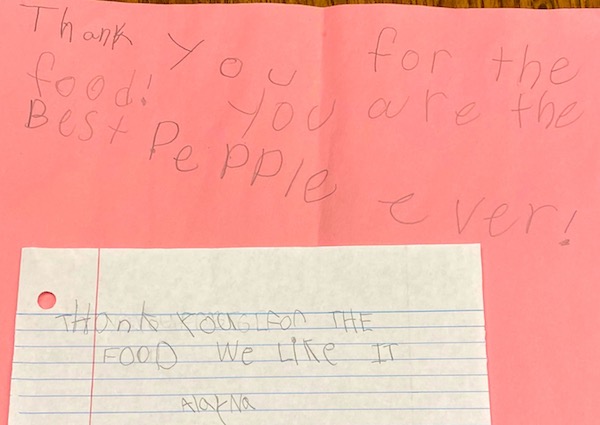 Thank you for the
food! you are the
Best Pepple ever!
THank YOU FOR THE
FOOD We LIKe IT
AlayNa